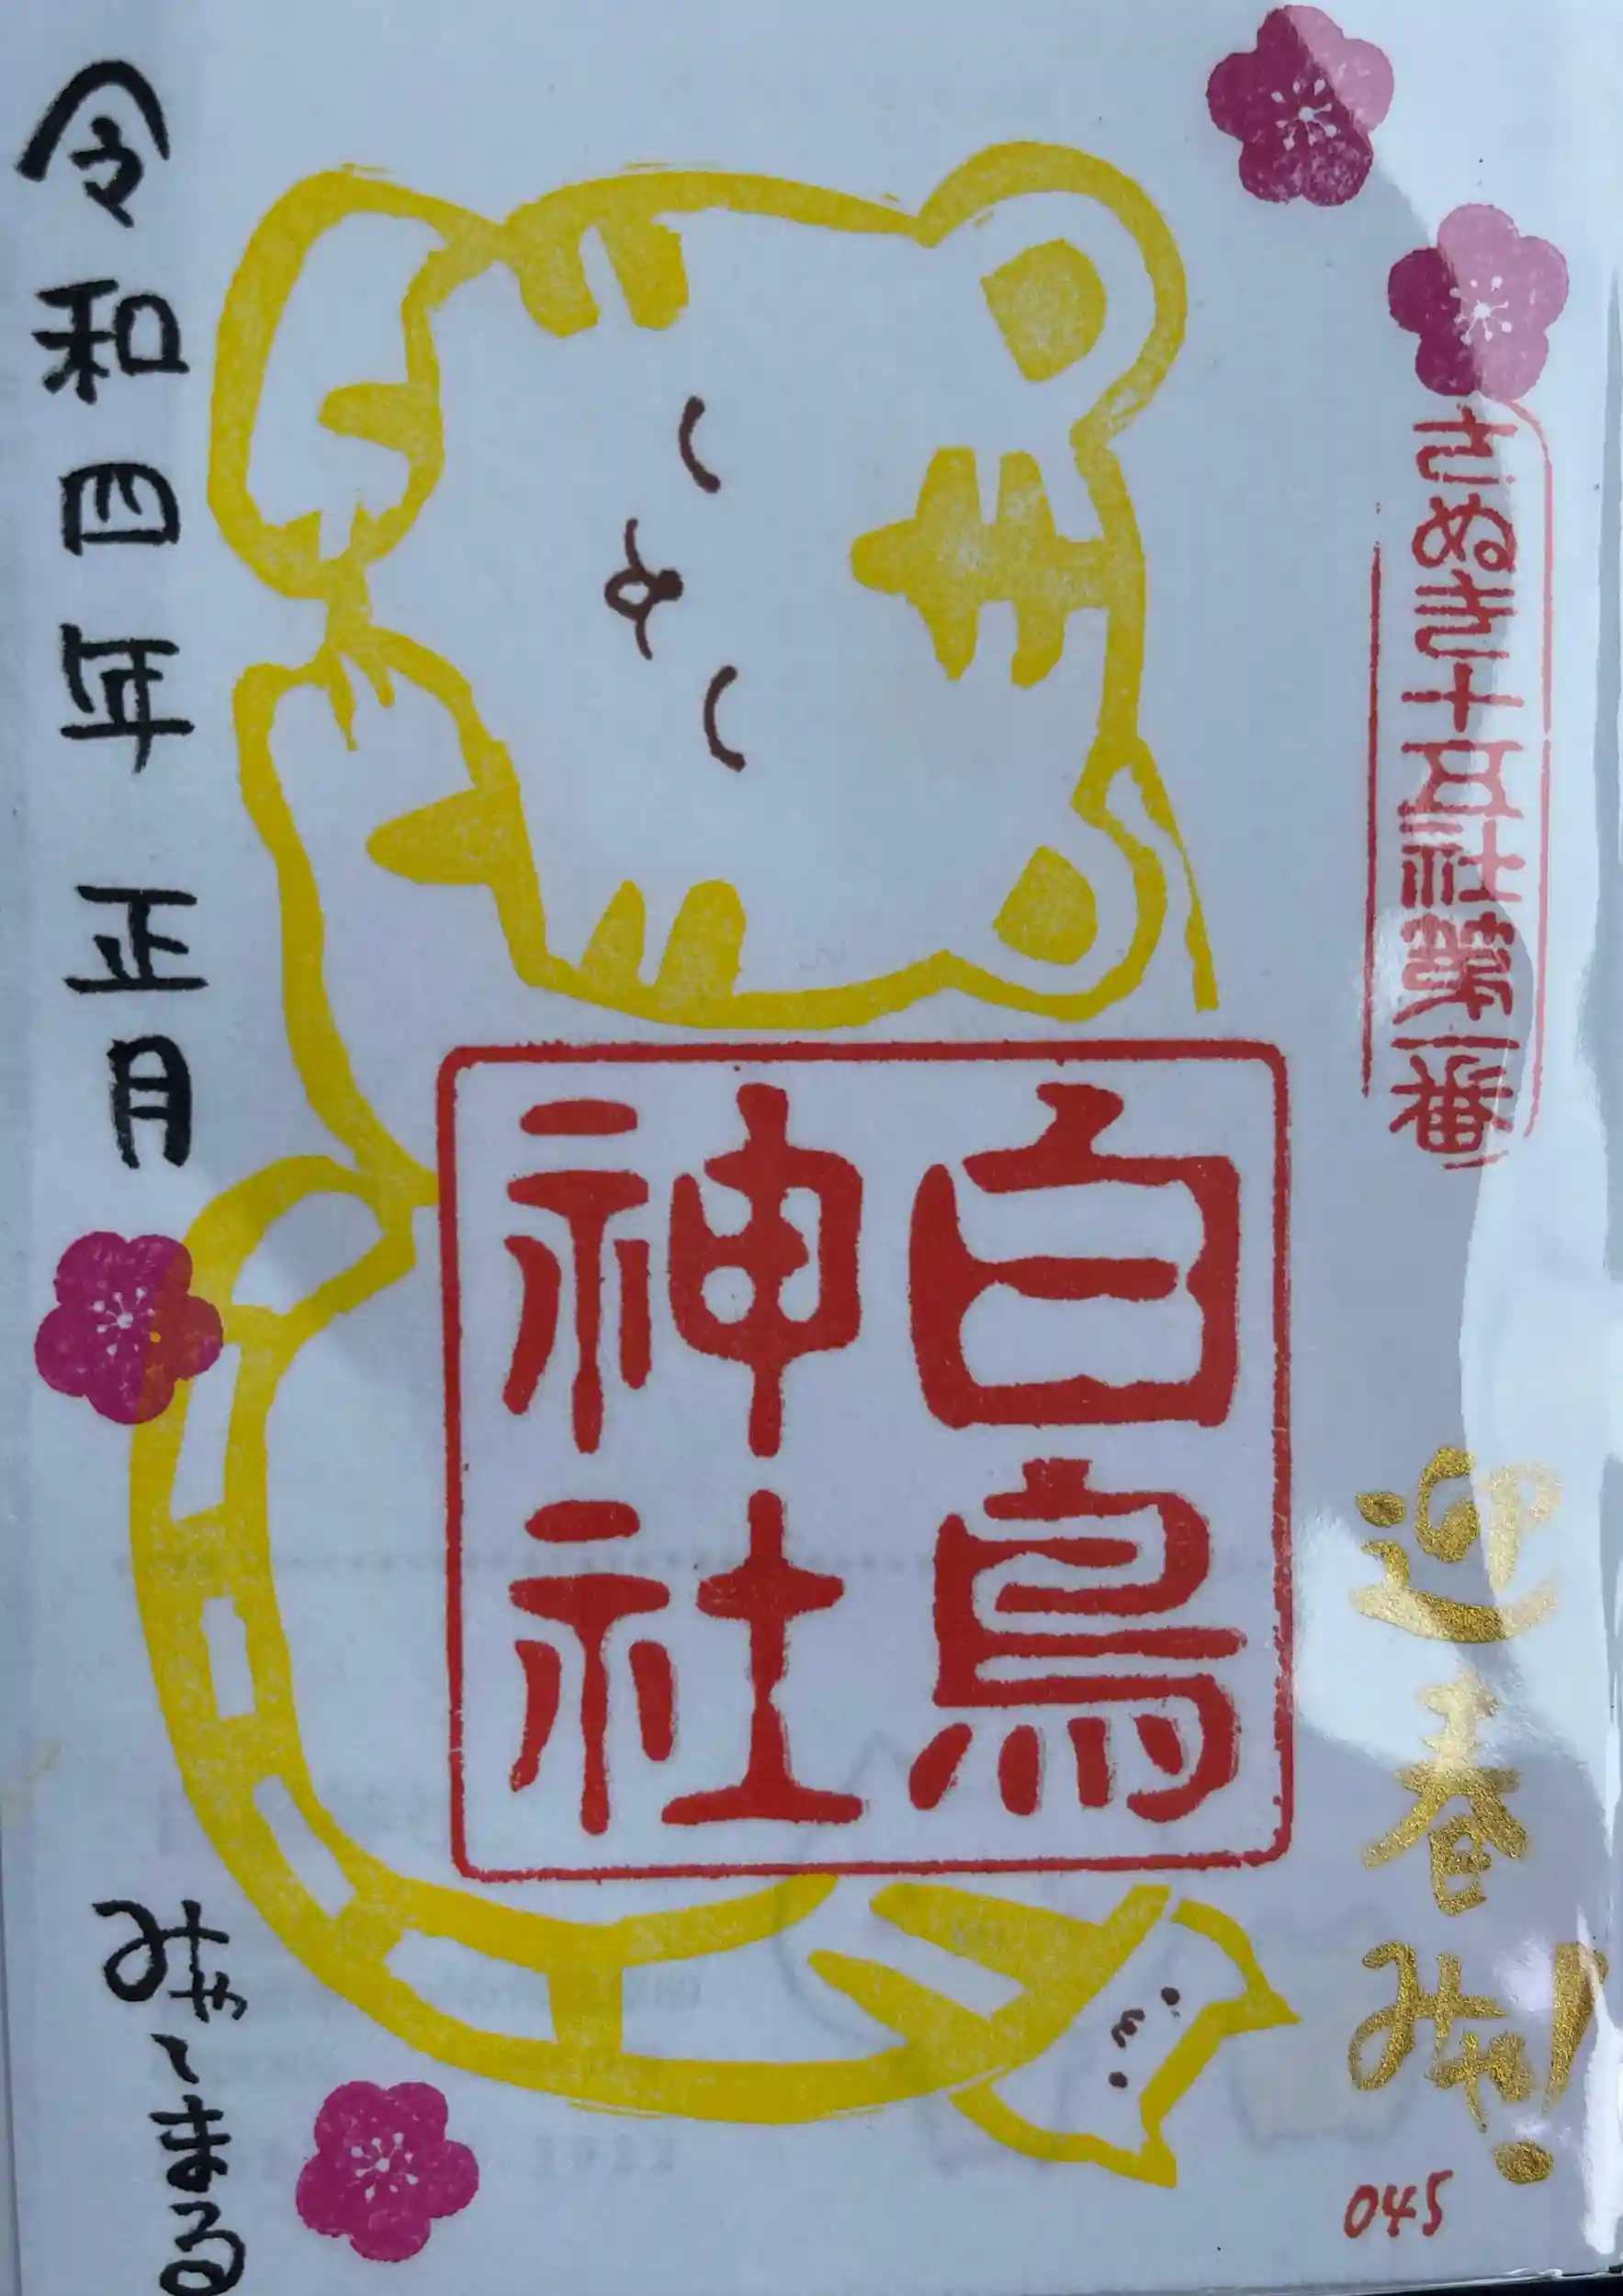 さぬき十五社第一番
迎春みゃ!
045
白鳥
神社
令和四年 正月
みゃ〜まる